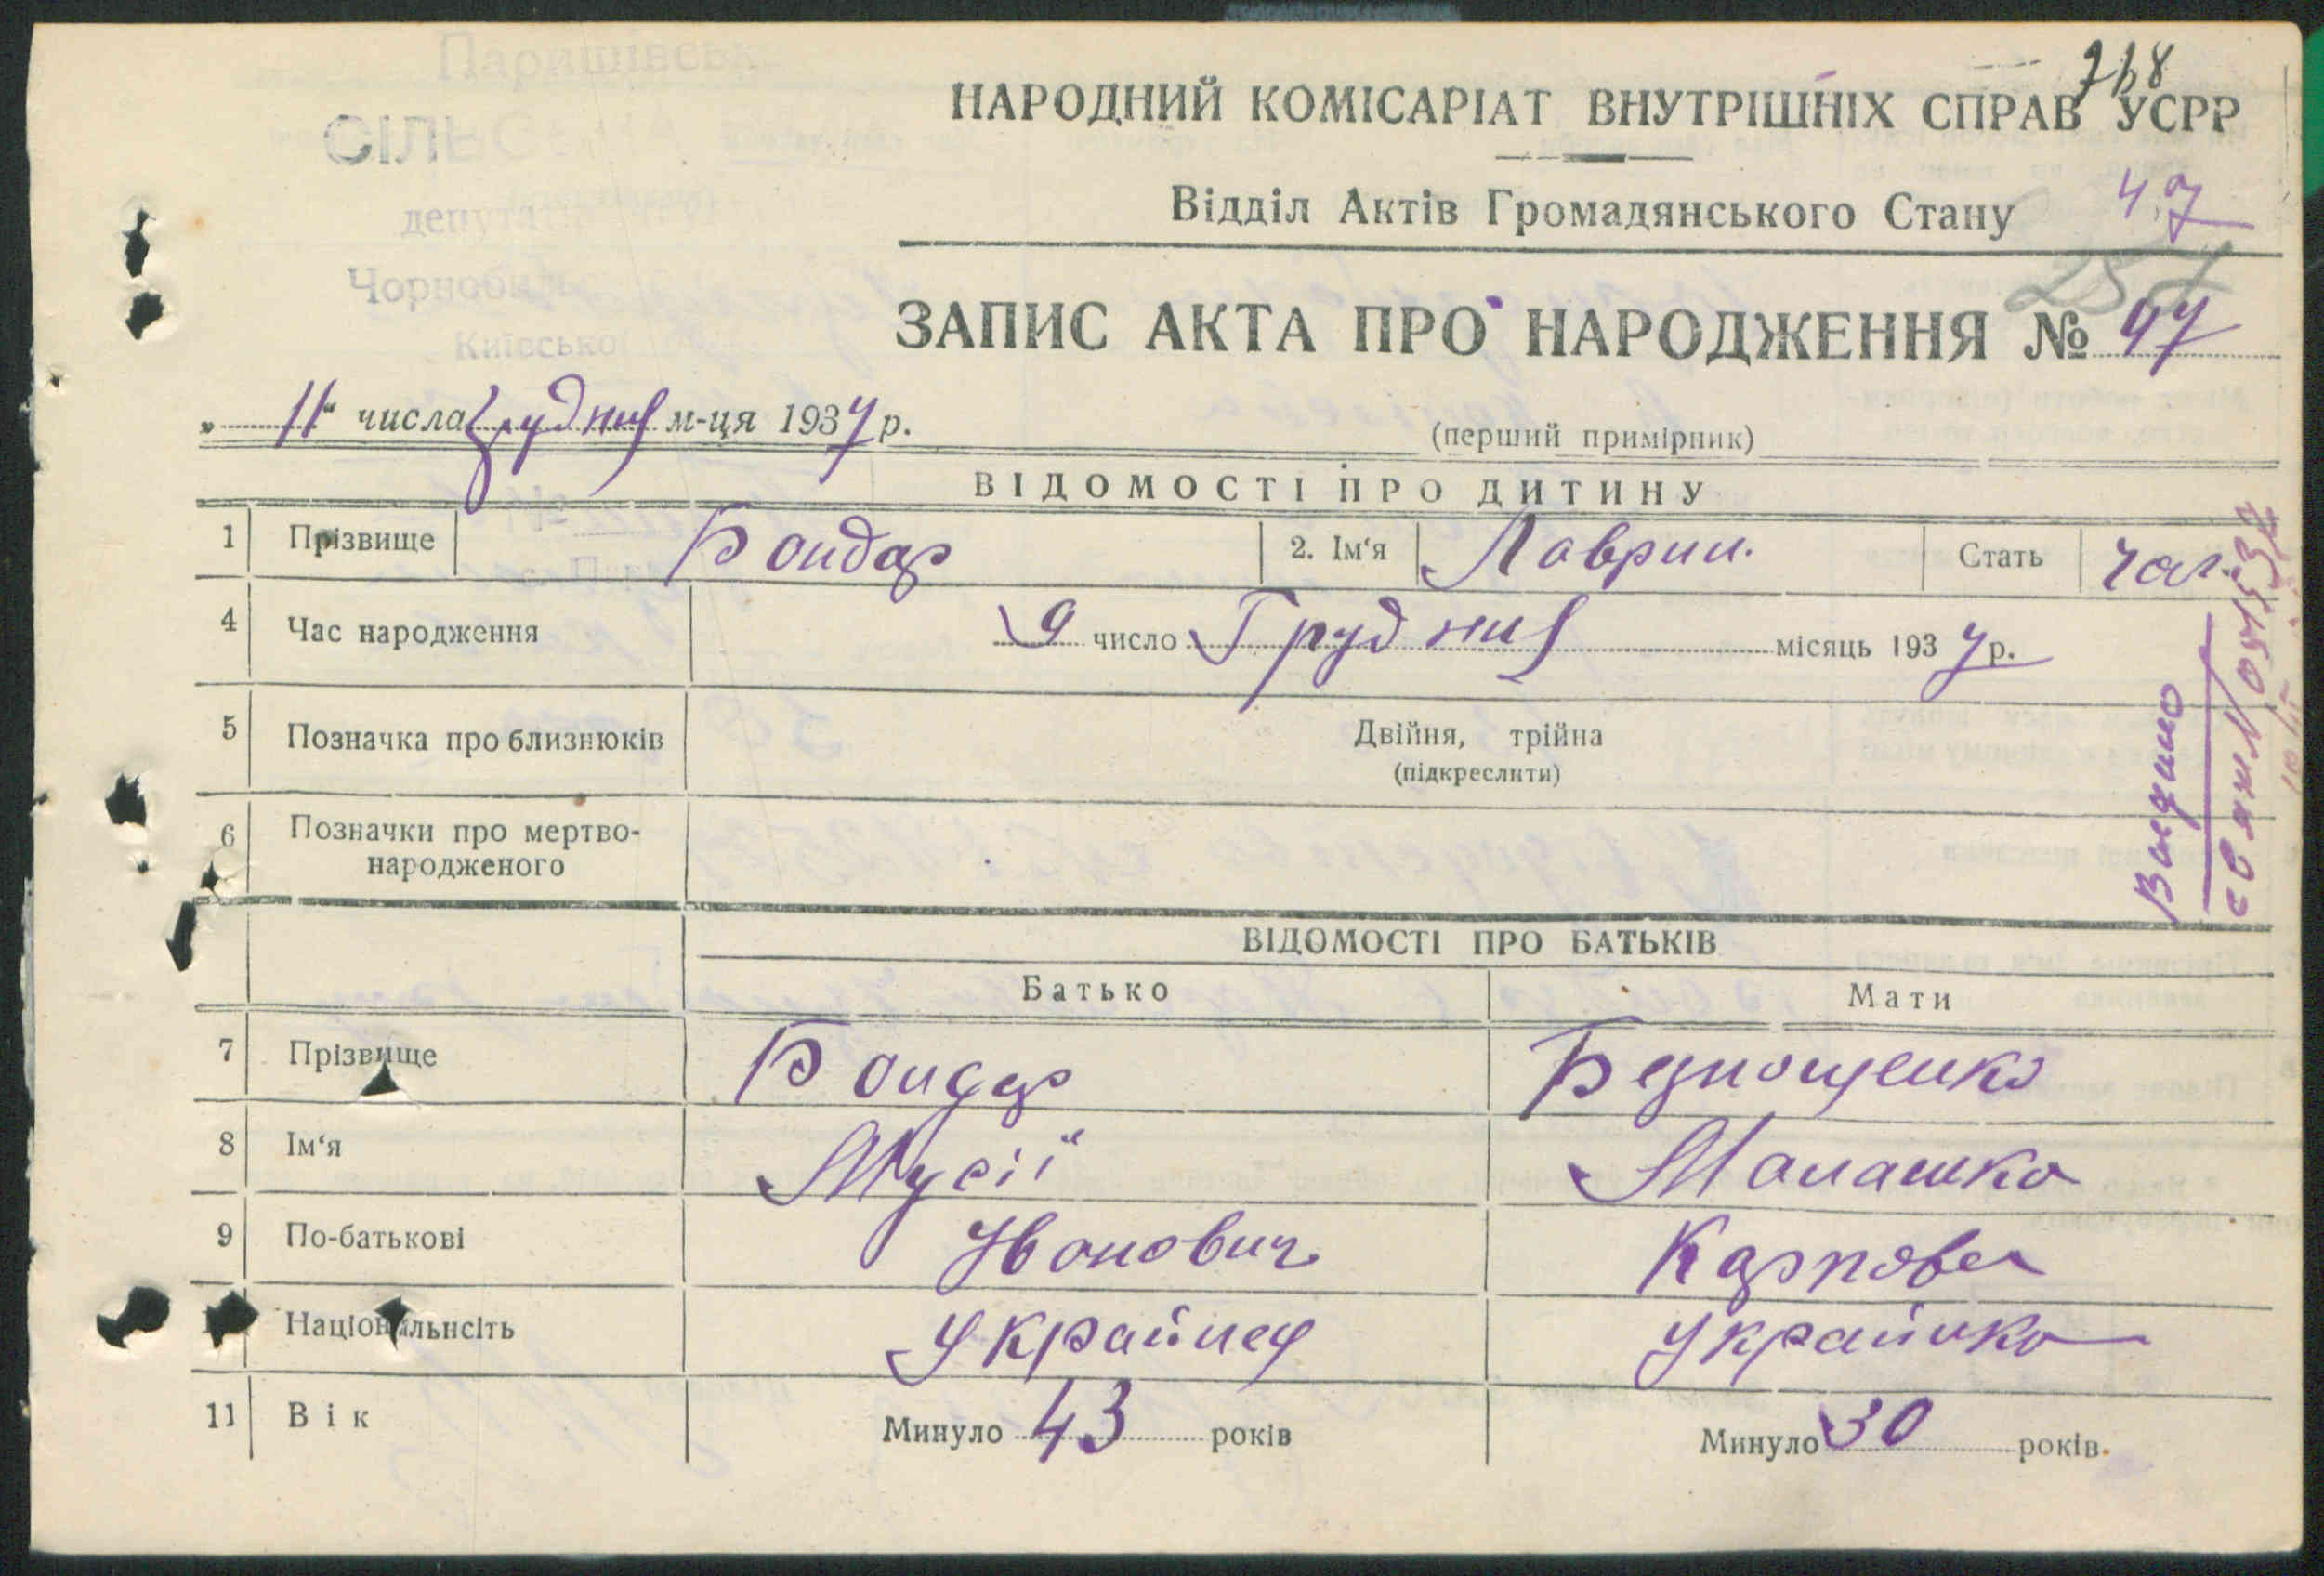 Паришівськ
768
НАРОДНИЙ КОМІСАРІАТ ВНУТРІШНІХ СПРАВ УСРР
СІЛЬС
депутат
Відділ Актів Громадянського Стану 47
Чорнобиль
Київської
257
ЗАПИС АКТА ПРО НАРОДЖЕННЯ № 47
„ 11 “ числа грудня м-ця 1937 р.
(перший примірник)
ВІДОМОСТІ ПРО ДИТИНУ
1 Прізвище Бондар 2. Ім‘я Лаврин. Стать чол.
4 Час народження 9 число Грудня місяць 1937 р.
5 Позначка про близнюків Двійня, трійна
(підкреслити)
6 Позначки про мертво-
народженого
Видано
ВІДОМОСТІ ПРО БАТЬКІВ
Батько Мати
7 Прізвище Бондар
8 Ім‘я Мусій Малашка
9 По-батькові Іванович Карповна
Національнсіть Українец Українка
11 Вік Минуло 43 років Минуло 30 років.